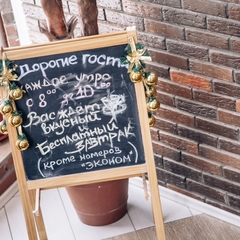 Дорогие гости
каждое утро
с 8⁰⁰ до 10⁰⁰
Вас ждёт
вкусный
и
Бесплатный
завтрак
(кроме номеров
"Эконом")